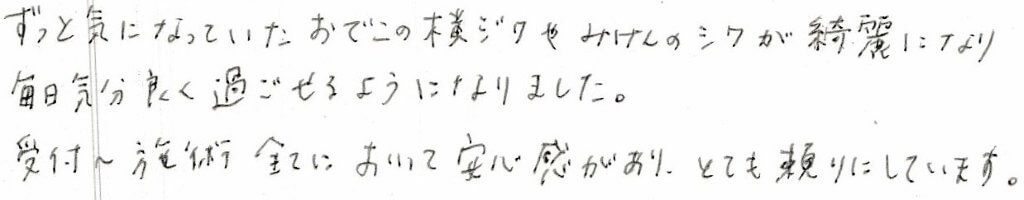 ずっと気になっていたおでこの横ジワやみけんのシワが綺麗になり
毎日気分良く過ごせるようになりました。
受付〜施術全てにおいて安心感があり、とても頼りにしています。